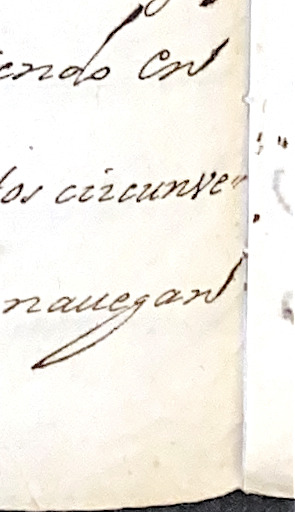 iendo en
los circunve
nauegan